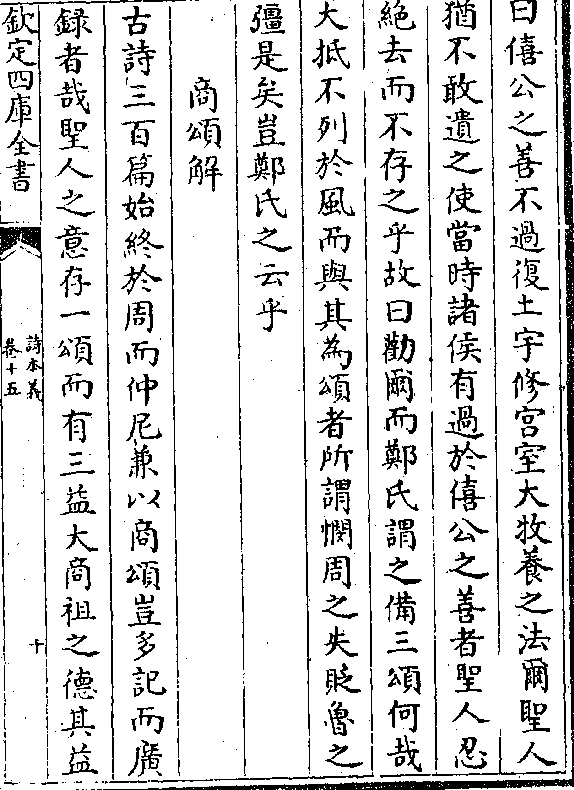 曰僖公之善不過復土宇修宮室大牧養之法爾聖人
猶不敢遺之使當時諸侯有過於僖公之善者聖人忍
絶去而不存之乎故曰勸爾而鄭氏謂之備三頌何哉
大抵不列於風而與其為頌者所謂憫周之失貶魯之
彊是矣豈鄭氏之云乎
商頌解
古詩三百篇始終於周而仲尼兼以商頌豈多記而廣
録者哉聖人之意存一頌而有三益大商祖之德其益
欽定四庫全書
詩本義
卷十五
十